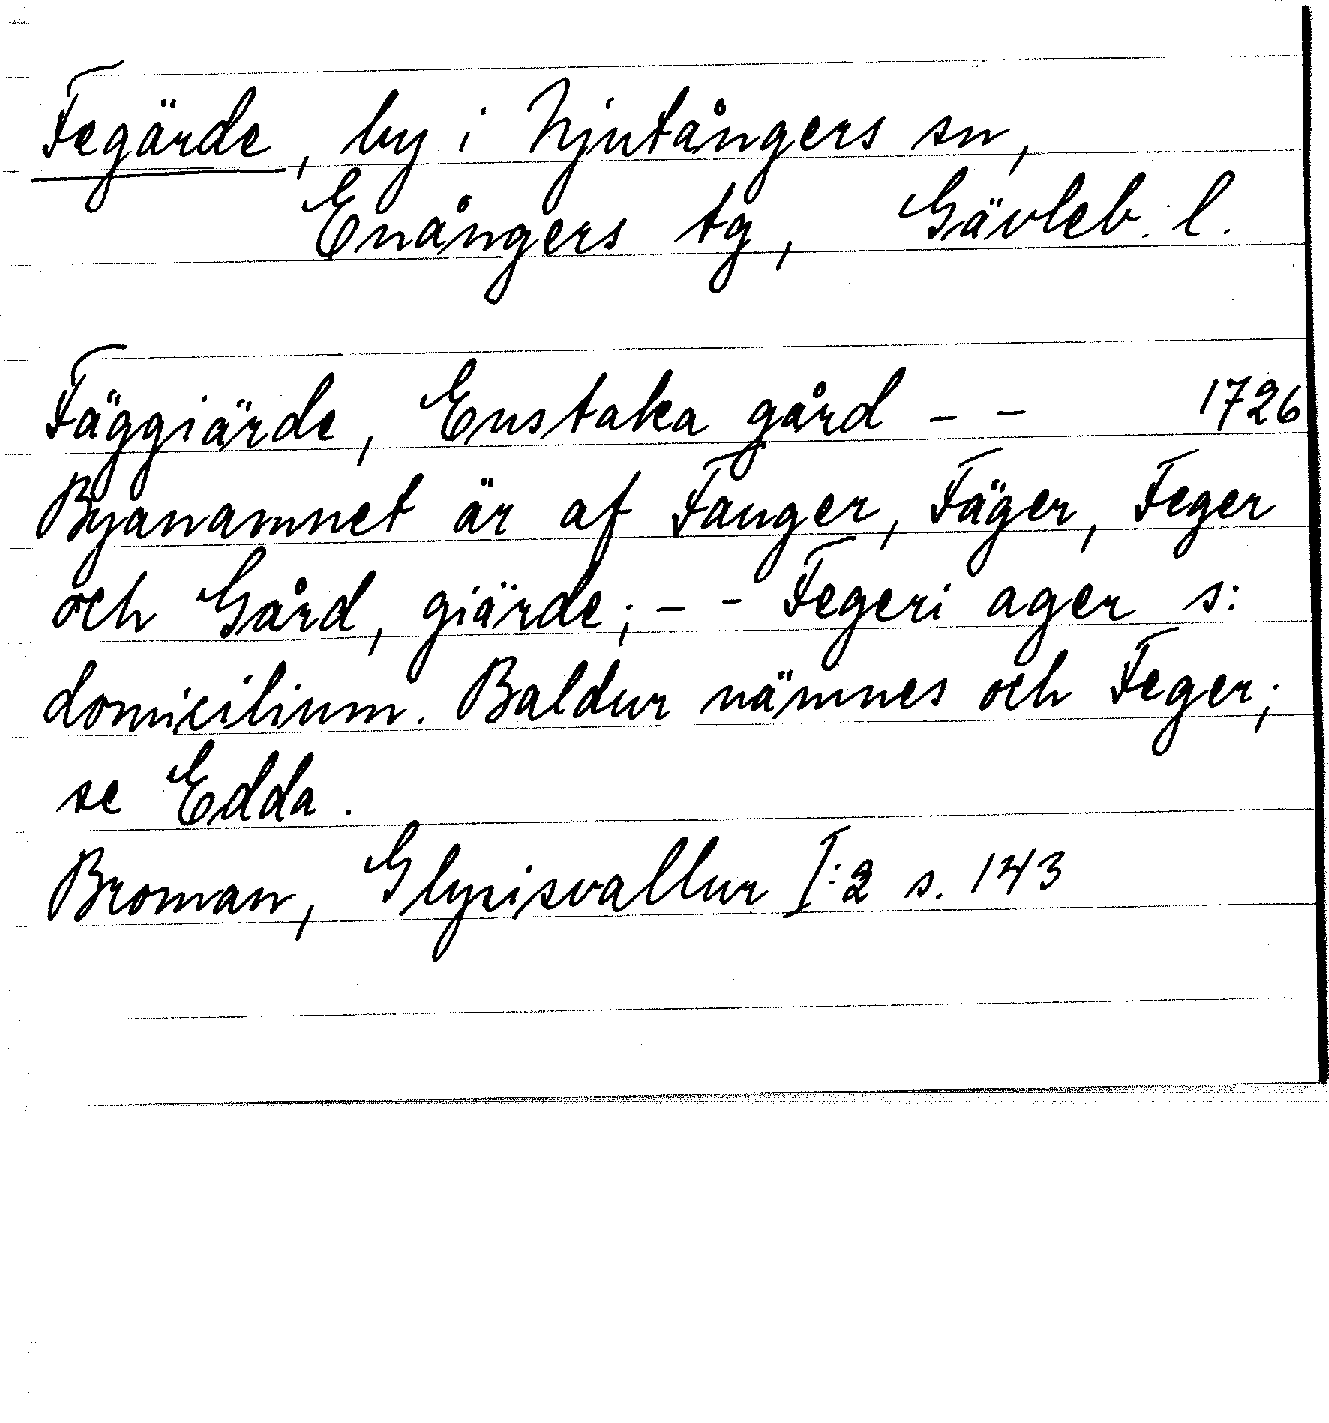 Fegärde, by i Njutångers sn,
Enångers tg, Gävleb. l.
Fäggiärde, Enstaka gård – – 1726
Byanamnet är af Fauger, Fäger, Feger
och Gård, giärde; – – Fegeri ager s:
domicilium. Baldur nämnes och Feger;
se Edda.
Broman, Glysisvallur I:2 s. 143